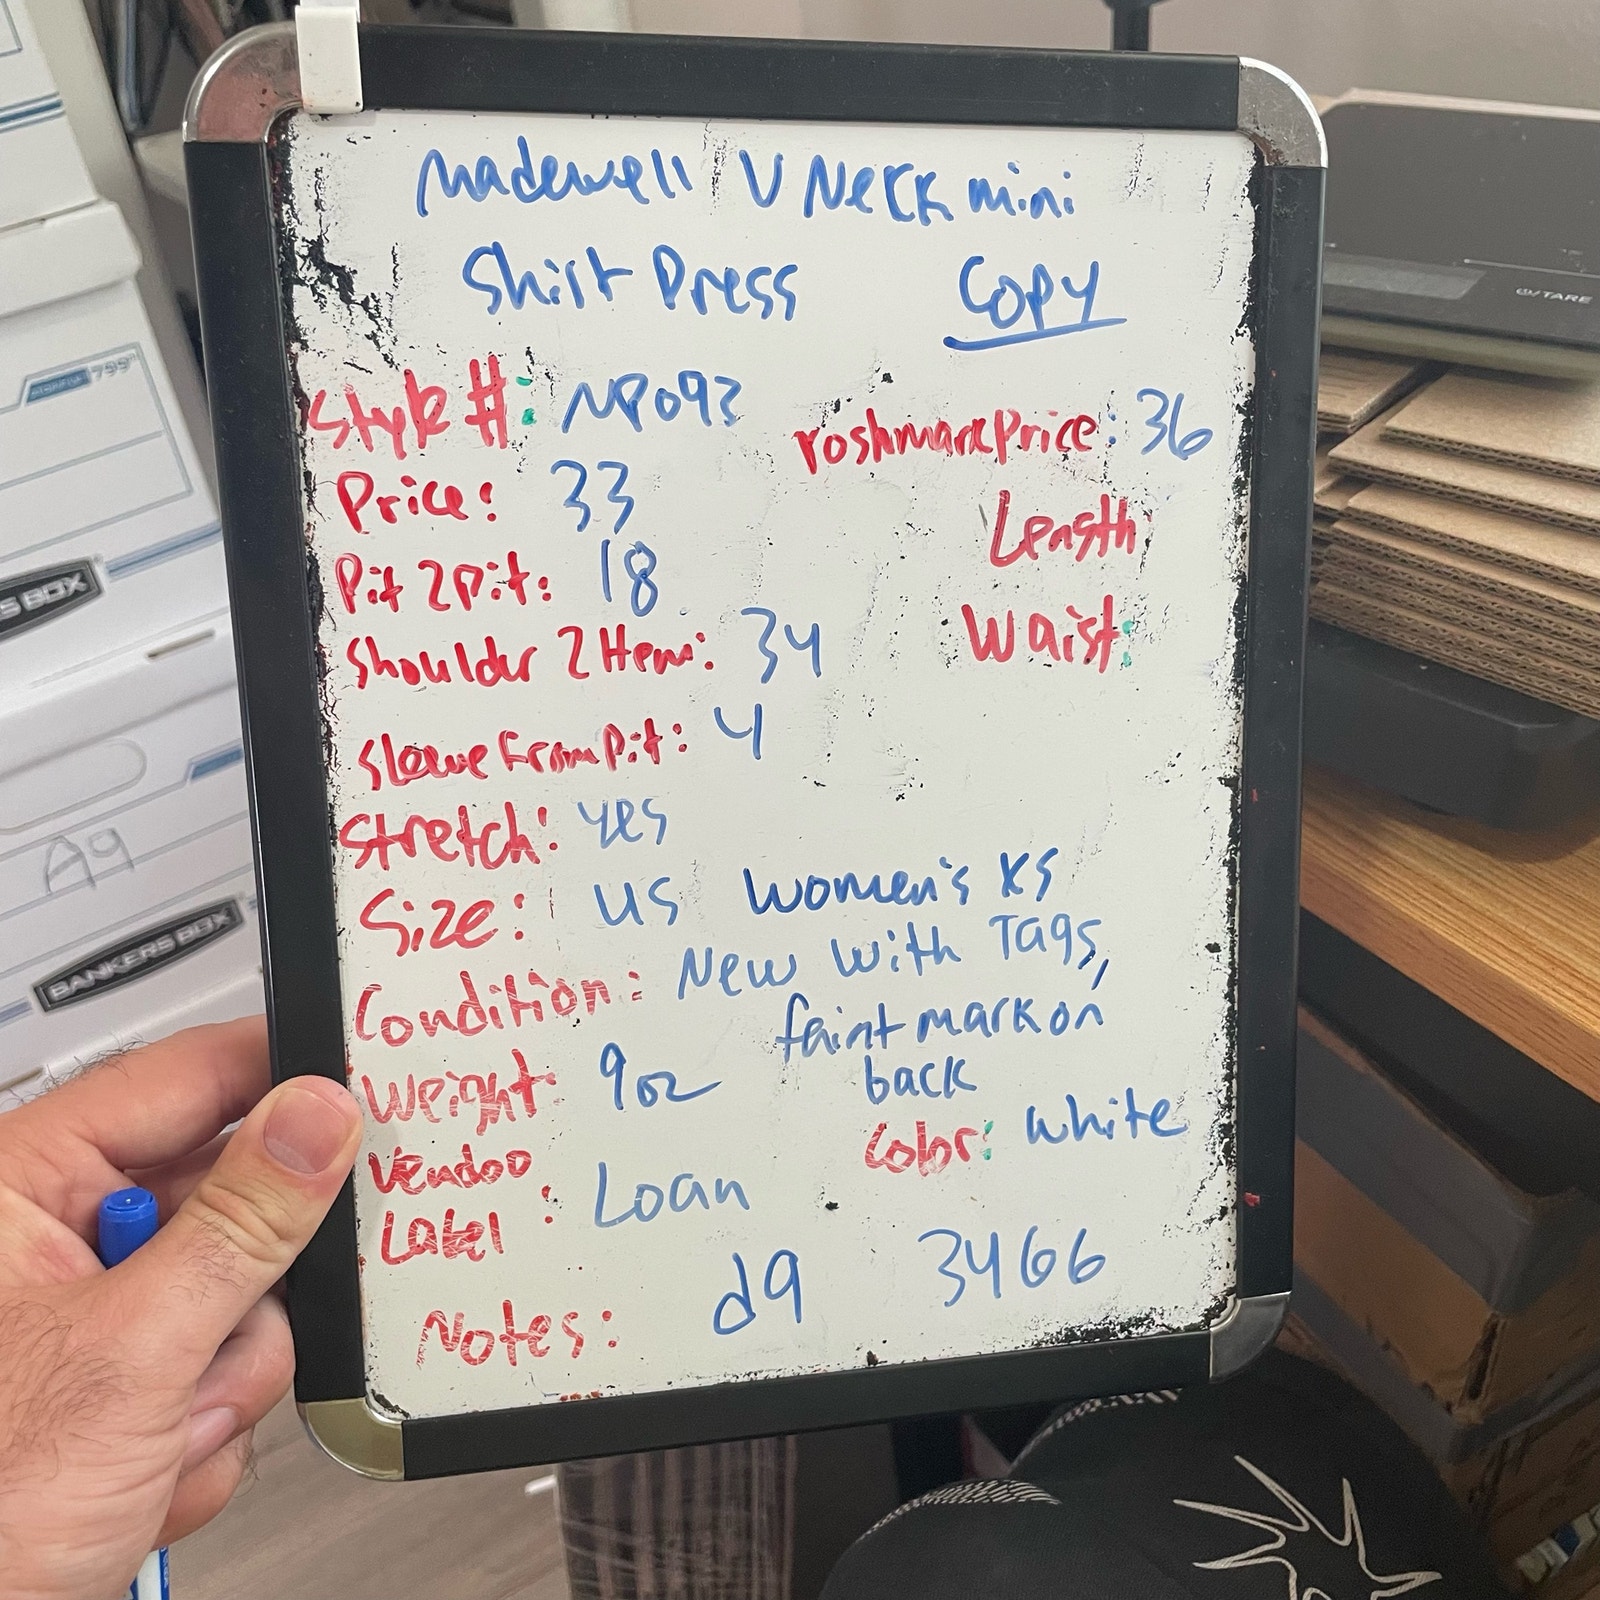 Madewell V Neck mini
Shirt Dress Copy
Style #: NP093
Poshmark Price: 36
Price: 33
Length
Pit 2 Pit: 18
Shoulder 2 Hem: 34
Waist:
Sleeve from Pit: 4
Stretch: yes
Size: US Women's XS
Condition: New with Tags,
faint mark on
back
Weight: 9oz
Color: white
Vendoo
Label : Loan
Notes: d9 3466
799
S BOX
A9
BANKERS BOX
TARE